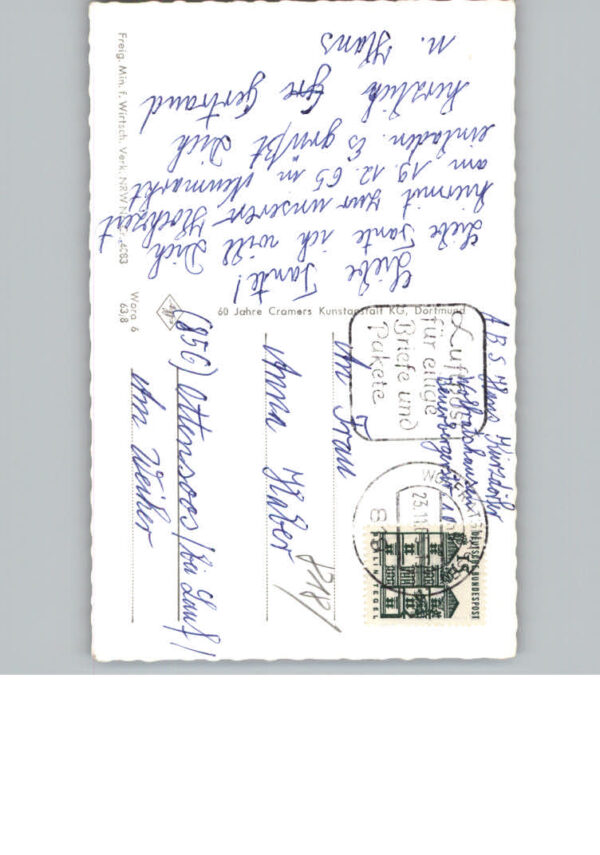 Liebe Tante!
Liebe Tante ich will Dich
hiermit zur unserer Hochzeit
am 19.12.65 in Neumarkt
einladen. Es grüßt Dich
herzlich Gertraud
u. Hans
Freig. Min. f. Wirtsch. Verk. NRW
Wora 6
63/8
60 Jahre Cramers Kunstanstalt KG, Dortmund
ABS Hans
Wolfratshausen
Luftpost
für eilige
Briefe und
Pakete
23.11.
DEUTSCHE BUNDESPOST
BERLIN TEGEL
An Frau
Anna Huber
8318/
(856) Ottensoos/bei Lauf/
Am Weiher